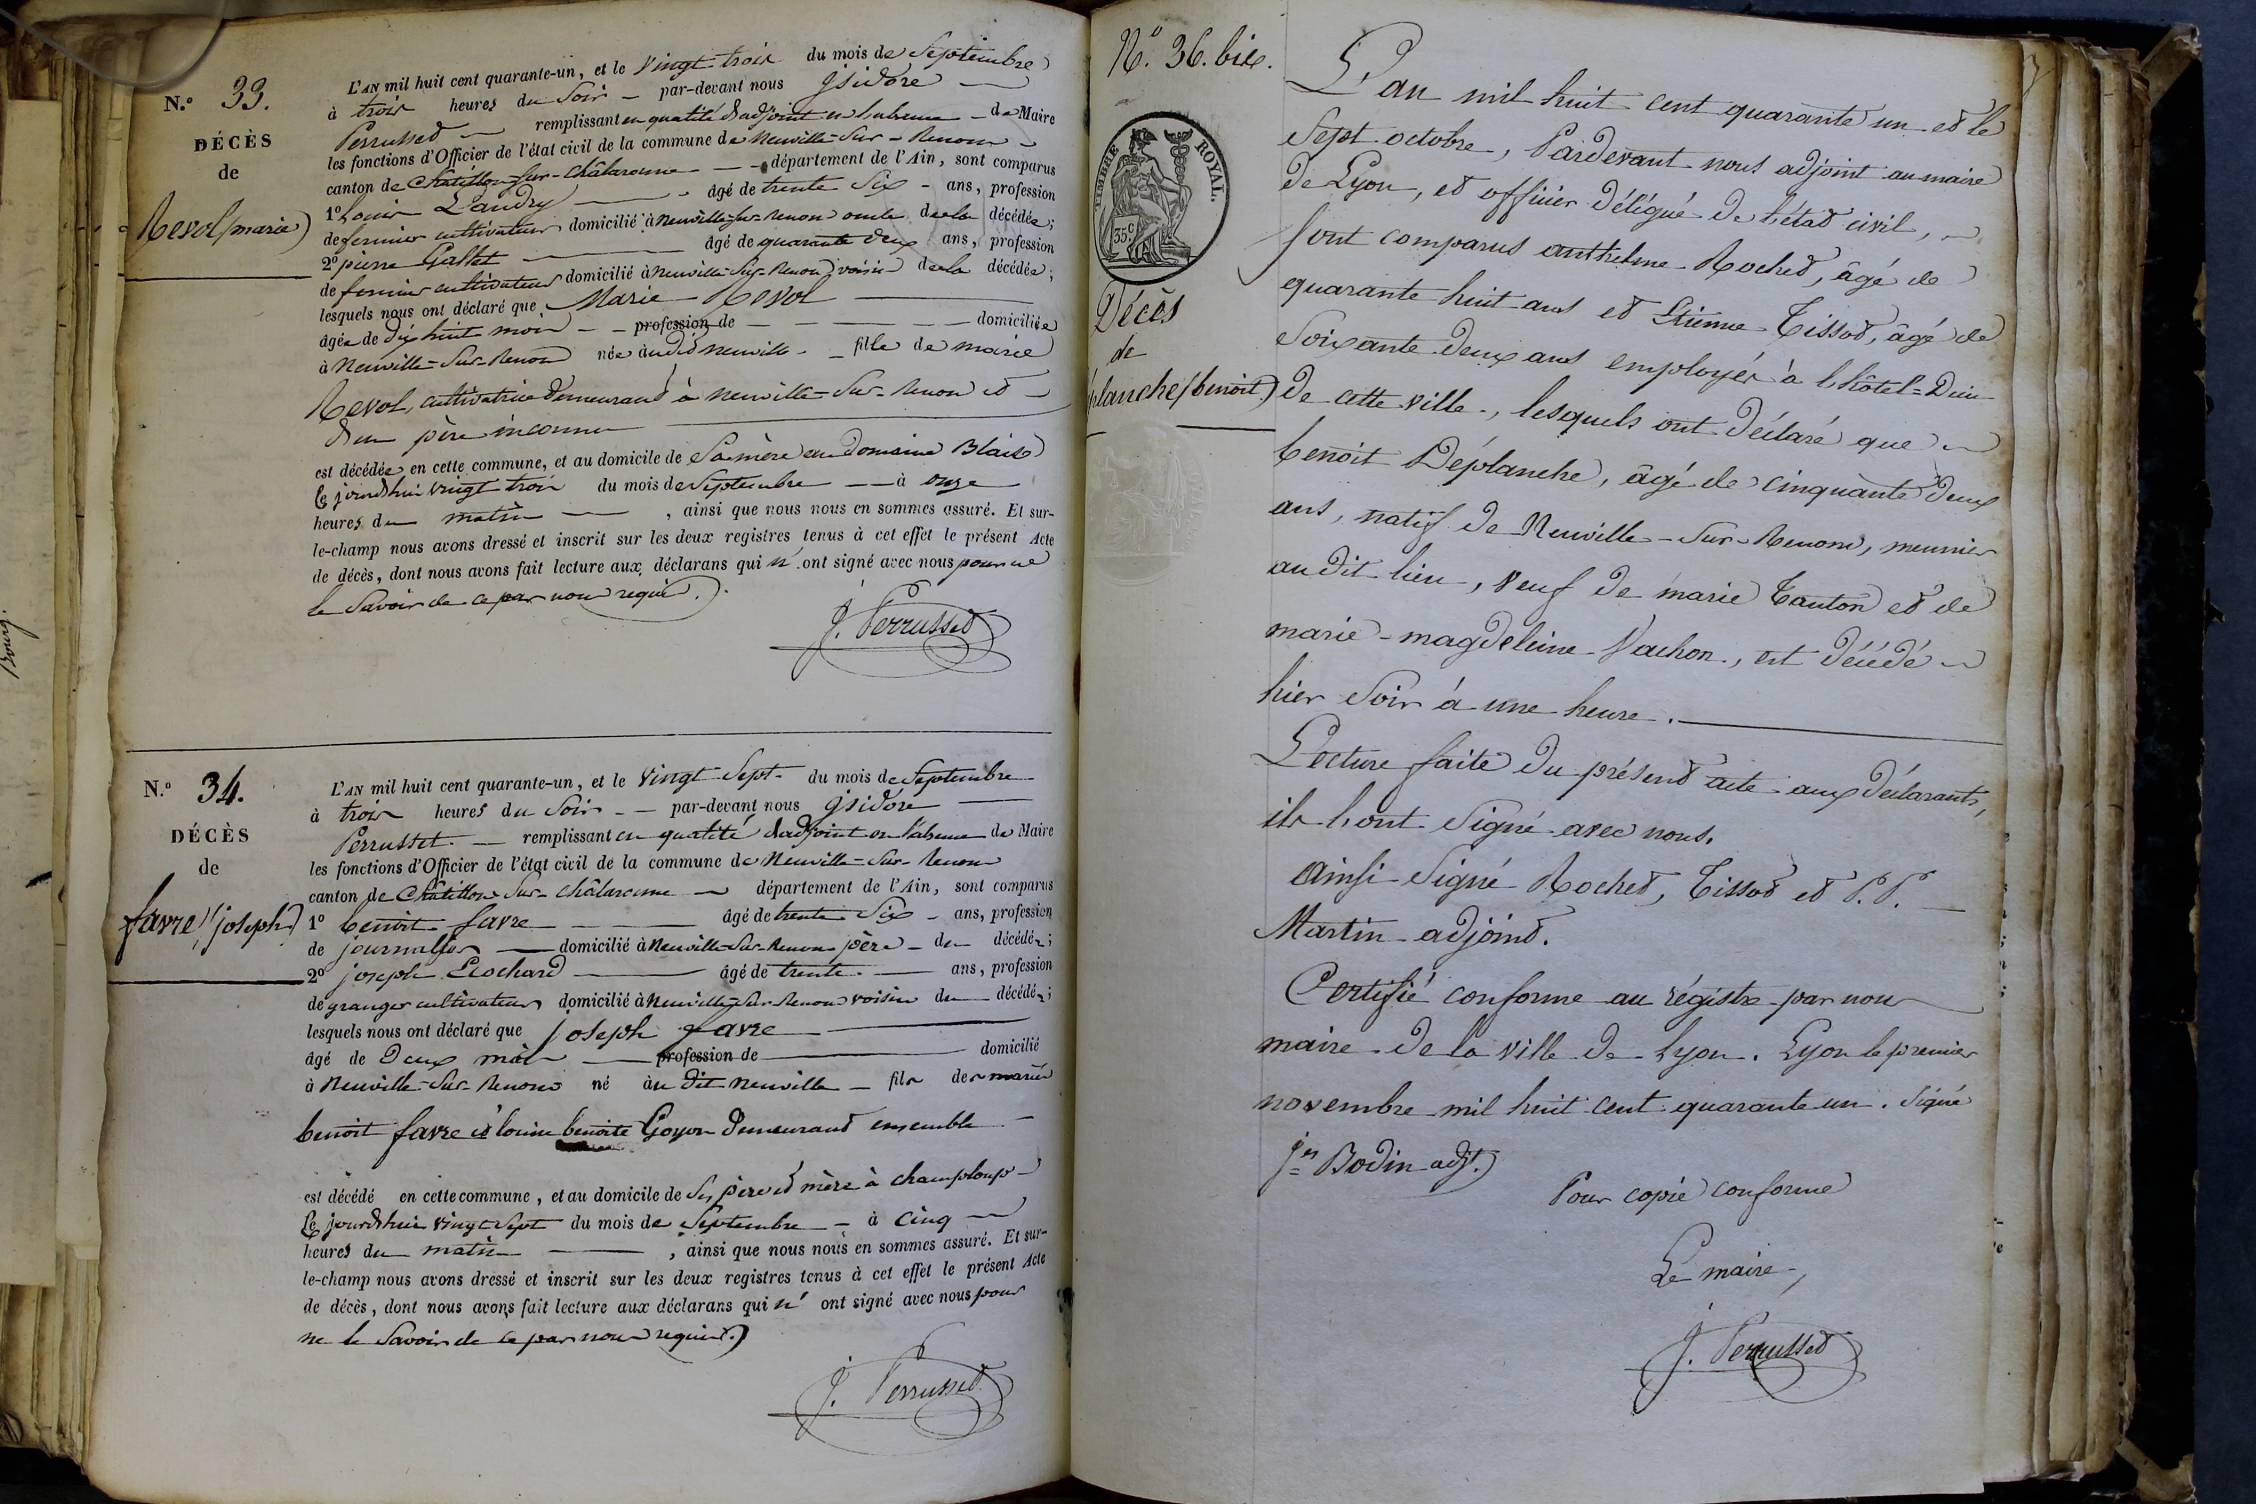 N.º 33.
DÉCÈS
de
Revol (marie)
L'AN mil huit cent quarante-un, et le vingt trois du mois de Septembre
à trois heures du Soir — par-devant nous jsidore
Perrusset remplissant en qualité d'adjoint en l'absence de Maire
les fonctions d'Officier de l'état civil de la commune de Neuville-Sur-Renom
canton de Châtillon-sur-Châlaronne département de l'Ain, sont comparus
1º Louis Landry âgé de trente Six ans, profession
de fermier cultivateur domicilié à Neuville-Sur-Renom oncle de la décédée;
2º pierre Gallet âgé de quarante deux ans, profession
de fermier cultivateur domicilié à Neuville-Sur-Renom voisin de la décédée;
lesquels nous ont déclaré que Marie Revol
âgée de dix huit mois profession de domiciliée
à Neuville-Sur-Renom née audit Neuville fille de marie
Revol, cultivatrice demeurant à Neuville-Sur-Renom et
d'un père inconnu
est décédée en cette commune, et au domicile de Sa mère au domaine Blaise
Ce jourdhui vingt trois du mois de Septembre à onze
heures du matin , ainsi que nous nous en sommes assuré. Et sur-
le-champ nous avons dressé et inscrit sur les deux registres tenus à cet effet le présent Acte
de décès, dont nous avons fait lecture aux déclarans qui n'ont signé avec nous pour ne
le Savoir de ce par nous requis.
J. Perrusset
N.º 34.
DÉCÈS
de
favre (joseph)
L'AN mil huit cent quarante-un, et le vingt Sept du mois de Septembre
à trois heures du Soir — par-devant nous jsidore
Perrusset remplissant en qualité d'adjoint en l'absence de Maire
les fonctions d'Officier de l'état civil de la commune de Neuville-Sur-Renom
canton de Châtillon-Sur-Châlaronne département de l'Ain, sont comparus
1º benoit favre âgé de trente Six ans, profession
de journalier domicilié à Neuville-Sur-Renom père du décédé;
2º joseph Prochard âgé de trente ans, profession
de granger cultivateur domicilié à Neuville-Sur-Renom voisin du décédé;
lesquels nous ont déclaré que joseph favre
âgé de Deux mois profession de domicilié
à Neuville-Sur-Renom né au dit Neuville fils des mariés
benoit favre et louise benoite Goyon demeurant ensemble
est décédé en cette commune, et au domicile de Ses père et mère à champloup
Ce jourdhui vingt Sept du mois de Septembre à Cinq
heures du matin , ainsi que nous nous en sommes assuré. Et sur-
le-champ nous avons dressé et inscrit sur les deux registres tenus à cet effet le présent Acte
de décès, dont nous avons fait lecture aux déclarans qui n' ont signé avec nous pour
ne le Savoir de ce par nous requis.
J. Perrusset
Bourg.
N.º 36. bis.
TIMBRE ROYAL.
35.C
Décès
de
planche (benoit)
L'an mil huit cent quarante un et le
Sept octobre, Pardevant nous adjoint au maire
de Lyon, et officier délégué de l'état civil,
Sont comparus anthelme Rochet, âgé de
quarante huit ans et Etienne Tissot, âgé de
Soixante deux ans employés à l'hôtel-Dieu
de cette ville, lesquels ont déclaré que
benoit Déplanche, âgé de cinquante deux
ans, natif de Neuville-Sur-Renom, meunier
audit lieu, veuf de marie Tanton et de
marie-magdeleine Vachon, est décédé
hier Soir à une heure.
Lecture faite du présent acte aux déclarants,
ils l'ont Signé avec nous.
ainsi Signé Rochet, Tissot et P.P.
Martin adjoint.
Certifié conforme au régistre par nous
maire de la ville de Lyon. Lyon le premier
novembre mil huit cent quarante un. Signé
jes Bodin adjt.
Pour copie conforme
Le maire,
J. Perrusset